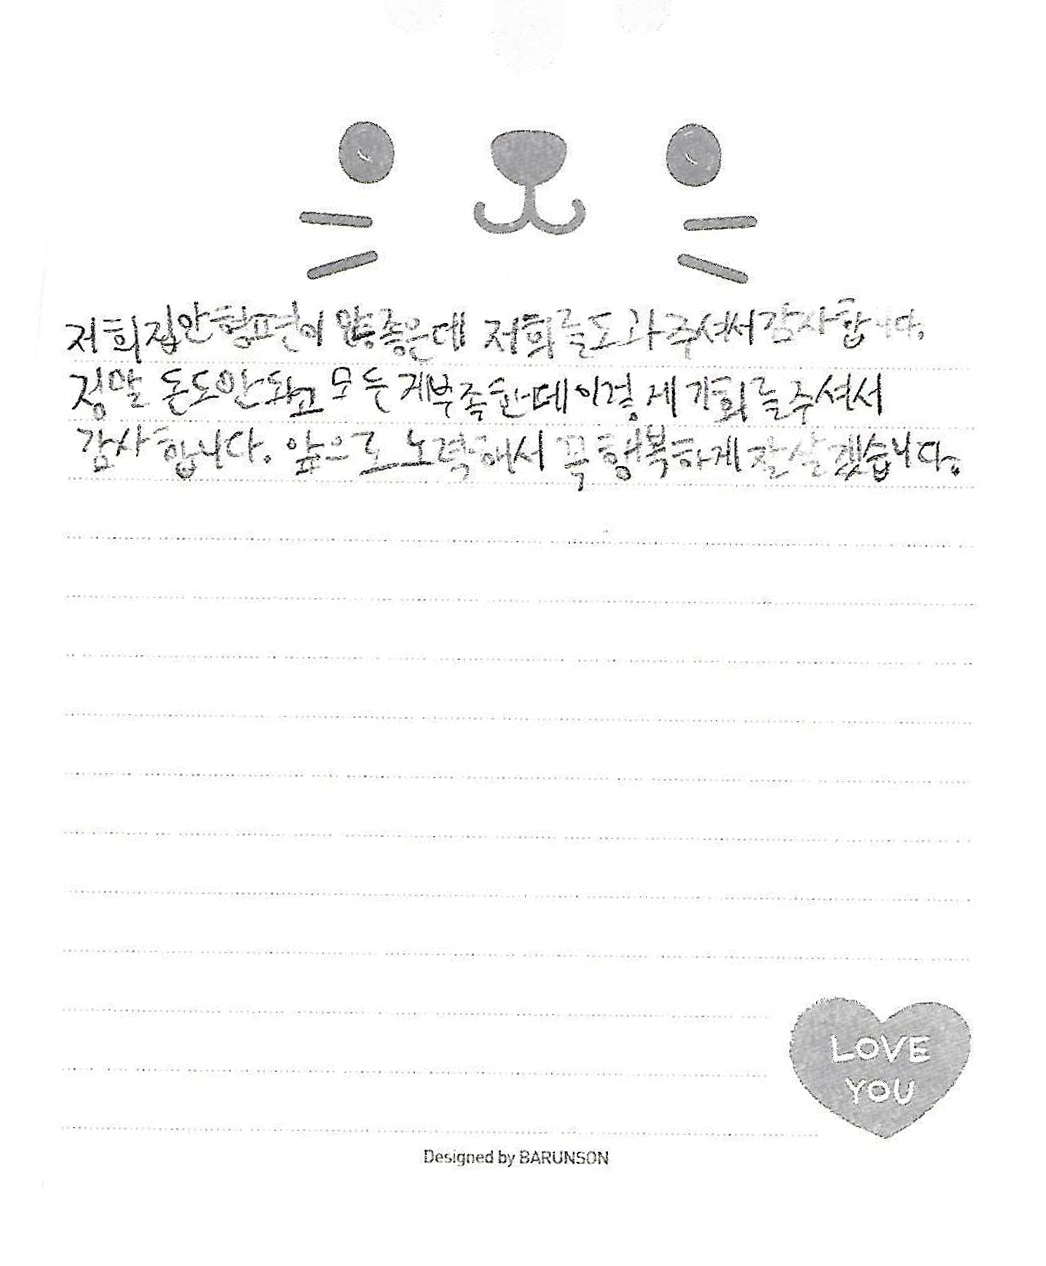 저희집안형편이 안좋은데 저희를도와주셔서감사합니다.
정말 돈도안되고 모든게부족한데이렇게 기회를주셔서
감사합니다. 앞으로 노력해서 꼭행복하게 잘살겠습니다.
LOVE
YOU
Designed by BARUNSON